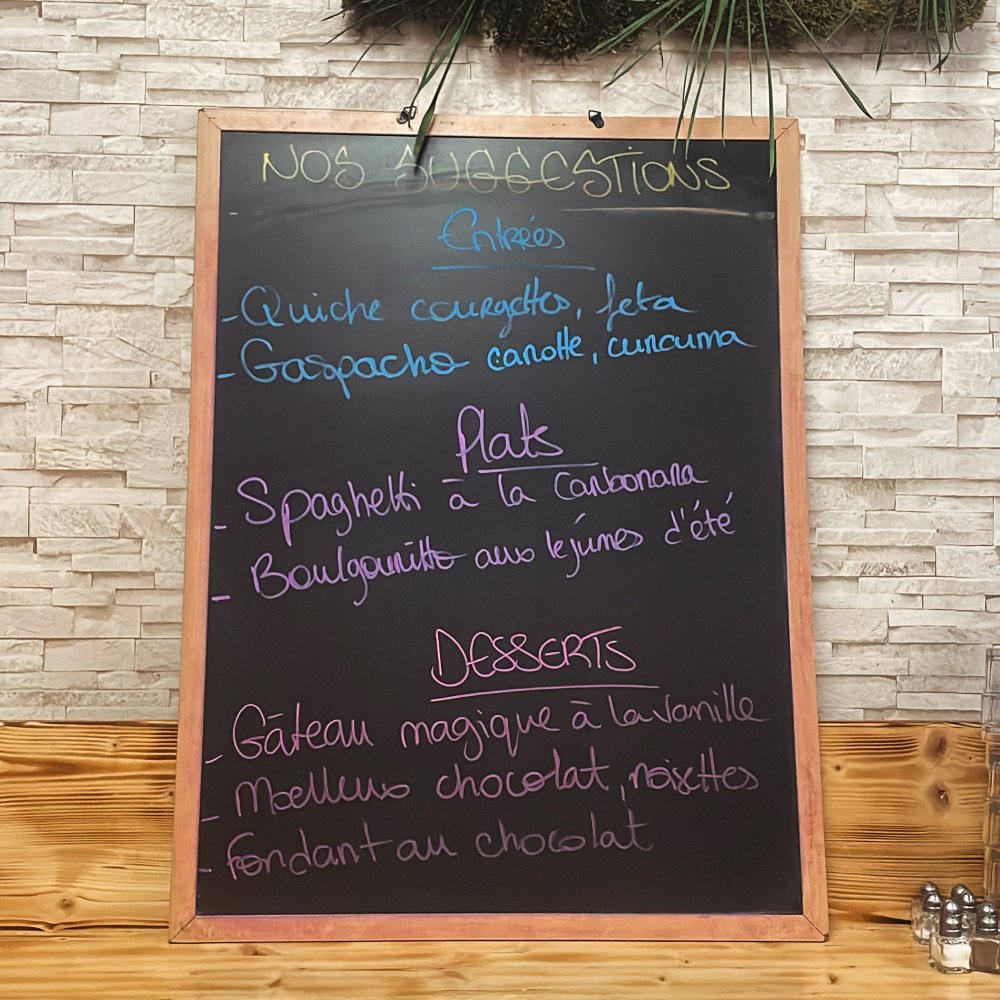 NOS SUGGESTIONS
Entrées
- Quiche courgettes, feta
- Gaspacho carotte, curcuma
Plats
- Spaghetti à la Carbonara
- Boulgouritto aux légumes d'été
DESSERTS
- Gâteau magique à la vanille
- Moelleux chocolat, noisettes
- Fondant au chocolat